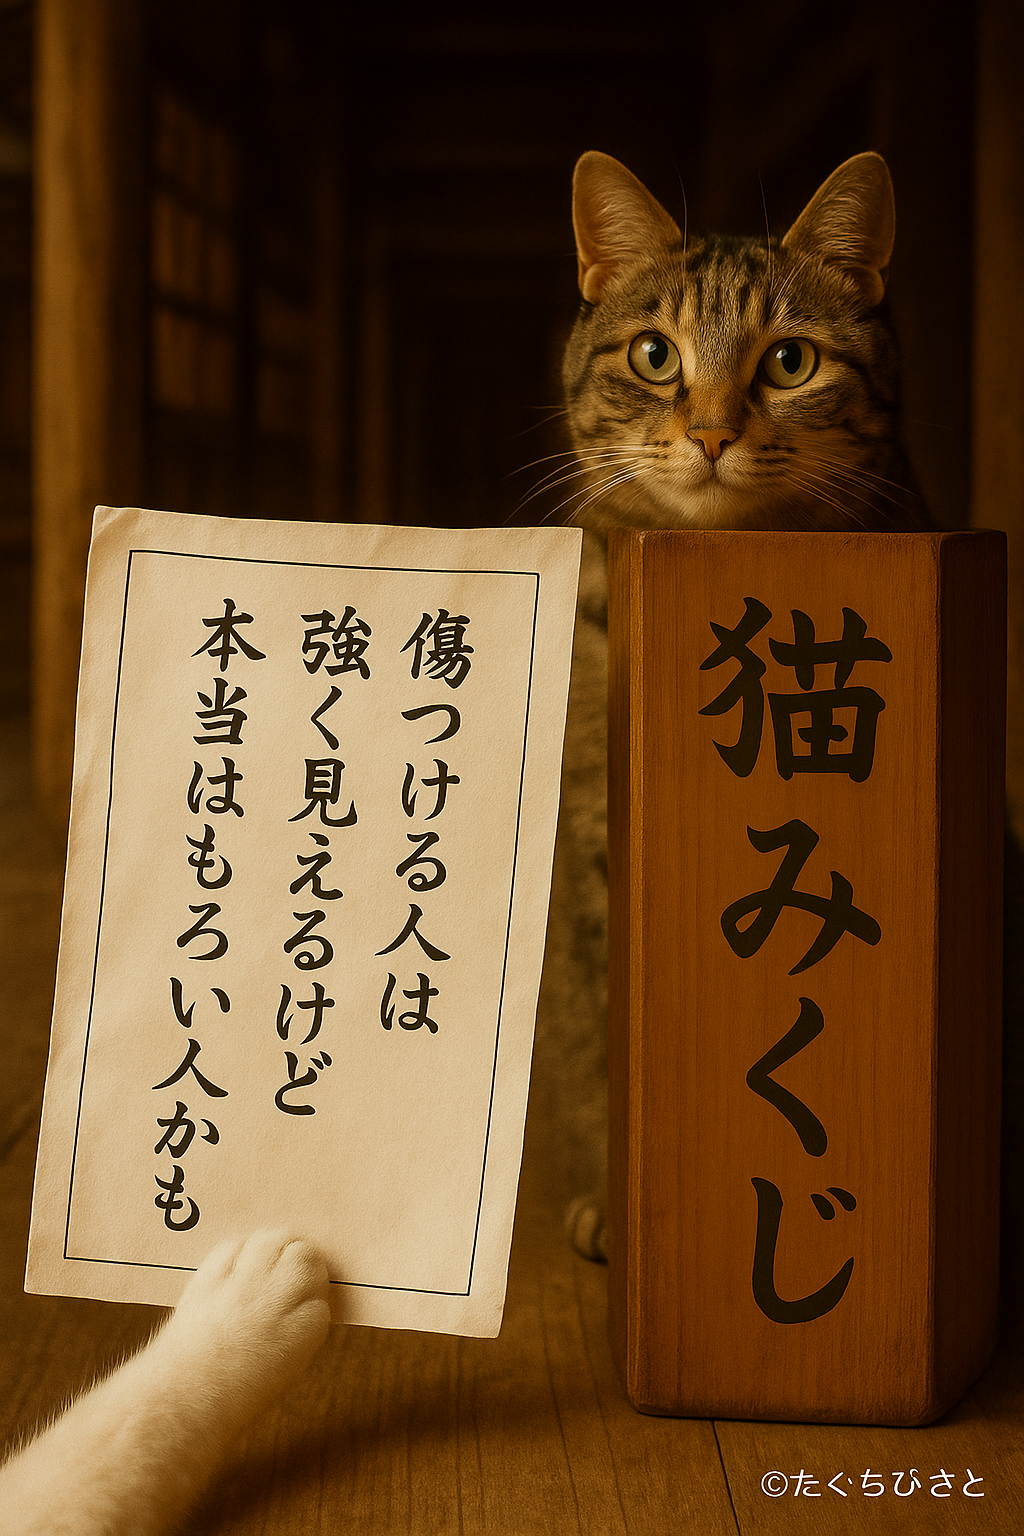 傷つける人は
強く見えるけど
本当はもろい人かも
猫みくじ
©たぐちひさと